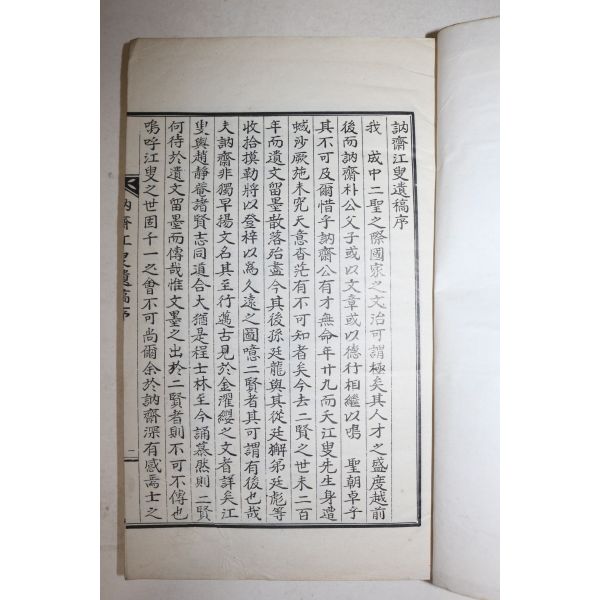 訥齋江叟遺稿序
我 成中二聖之際國家之文治可謂極矣其人才之盛度越前
後而訥齋朴公父子或以文章或以德行相繼以鳴 聖朝卓乎
其不可及爾惜乎訥齋公有才無命年廿九而夭江叟先生身遭
蜮沙厥施未究天意杳茫有不可知者矣今去二賢之世未二百
年而遺文留墨散落殆盡今其後孫廷龍與其從廷獬弟廷彪等
收拾摸勒將以登梓以爲久遠之圖噫二賢者其可謂有後也哉
夫訥齋非獨早揚文名其至行邁古見於金濯纓之文者詳矣江
叟與趙靜菴諸賢志同道合大猶是程士林至今誦慕然則二賢
何待於遺文留墨而傳哉惟文墨之出於二賢者則不可不傳也
嗚呼江叟之世固千一之會不可尚爾余於訥齋深有感焉士之
訥齋江叟遺稿序
一